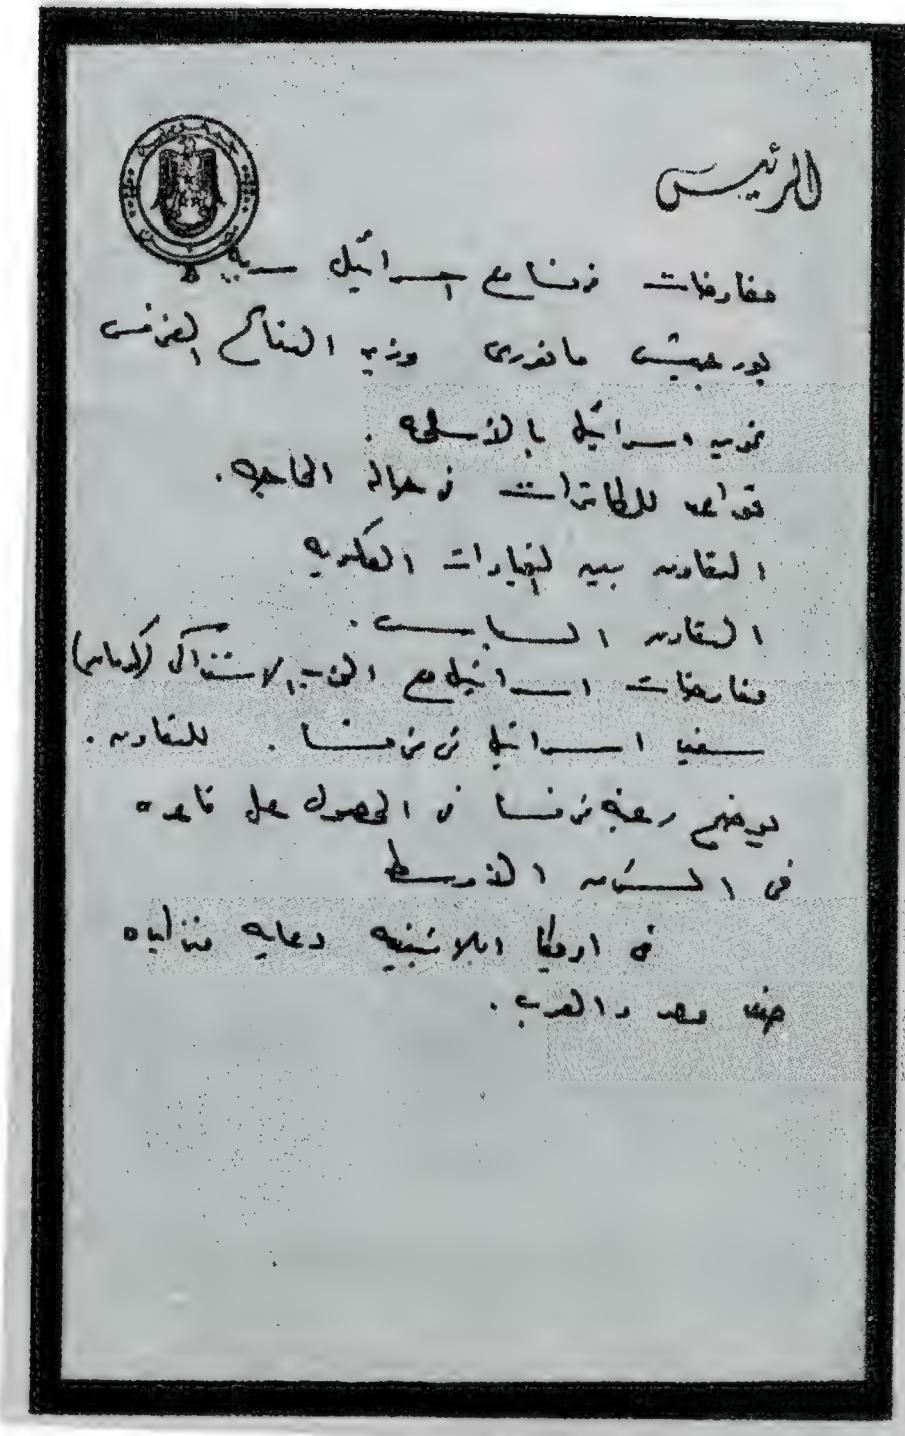 الرئيس
مفاوضات فرنسا مع اسرائيل سريه
بورجيس مانورى وزير الدفاع الفرنسى
تموين اسرائيل بالأسلحه.
قواعد للطائرات فى حالة الحاجه.
التعاون بين القيادات العسكريه
التعاون السياسى.
مفاوضات اسرائيل مع الحزب الاشتراكى
سفير اسرائيل فى فرنسا. للتعاون.
يوضح رغبة فرنسا فى الحصول على قاعده
فى الشرق الأوسط
فى امريكا اللاتينيه دعايه متزايده
ضد مصر والعرب.